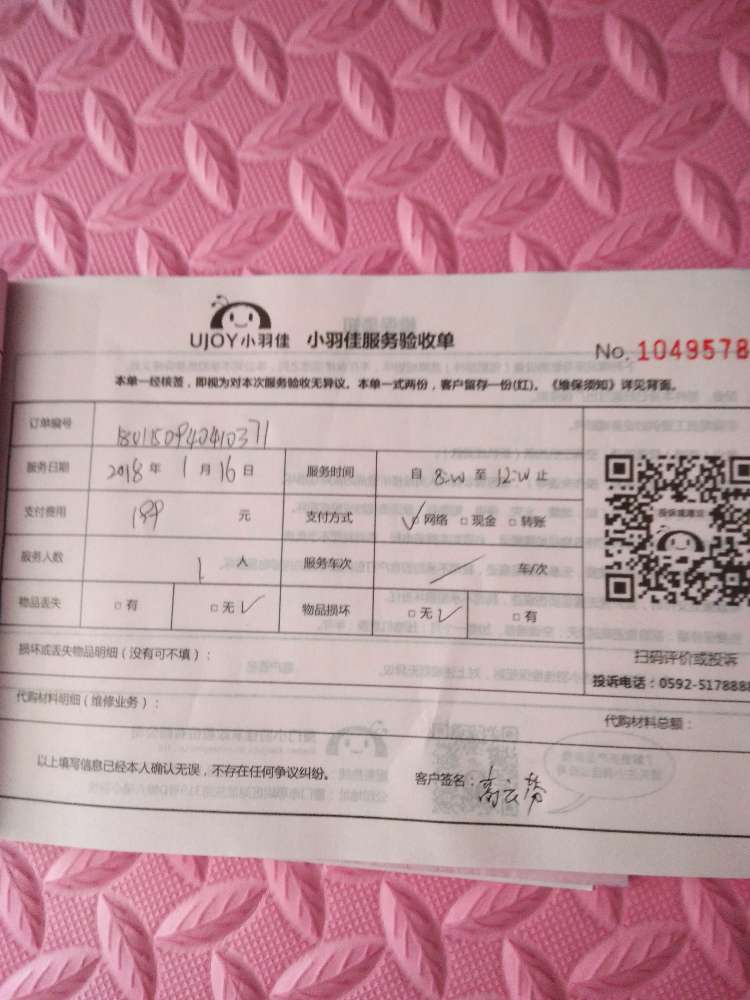 UJOY小羽佳 小羽佳服务验收单
No. 1049578
本单一经核签，即视为对本次服务验收无异议。本单一式两份，客户留存一份(红)。《维保须知》详见背面。
订单编号
服务日期 2018 年 1 月 16 日 服务时间 自 8:00 至 12:00 止
支付费用 199 元 支付方式 ✓□ 网络 □ 现金 □ 转账
服务人数 1 人 服务车次 / 车/次
物品丢失 □ 有 □ 无 ✓ 物品损坏 □ 无 ✓ □ 有
投诉或建议
扫码评价或投诉
投诉电话：0592-5178888
损坏或丢失物品明细（没有可不填）：
代购材料明细（维修业务）： 代购材料总额：
以上填写信息已经本人确认无误，不存在任何争议纠纷。 客户签名：